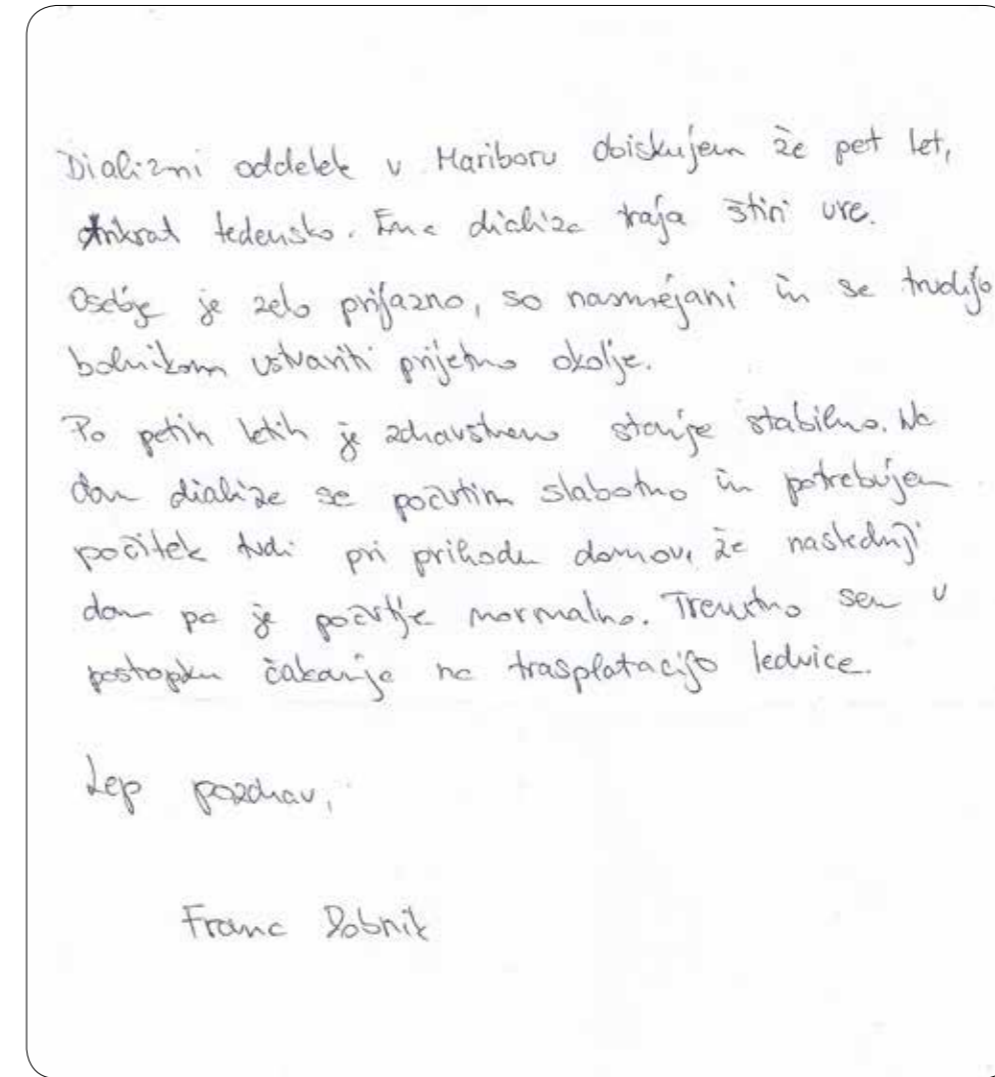 Dializni oddelek v Mariboru obiskujem že pet let,
trikrat tedensko. Ena dializa traja štiri ure.
Osebje je zelo prijazno, so nasmejani in se trudijo
bolnikom ustvariti prijetno okolje.
Po petih letih je zdravstveno stanje stabilno. Na
dan dialize se počutim slabotno in potrebujem
počitek tudi pri prihodu domov, že naslednji
dan pa je počutje normalno. Trenutno sem v
postopku čakanja na trasplatacijo ledvice.
Lep pozdrav,
Franc Dobnik